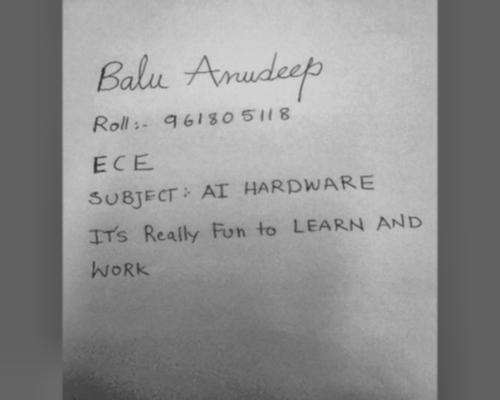 Balu Anudeep
Roll:- 961805118
ECE
SUBJECT:- AI HARDWARE
IT's Really Fun to LEARN AND
WORK